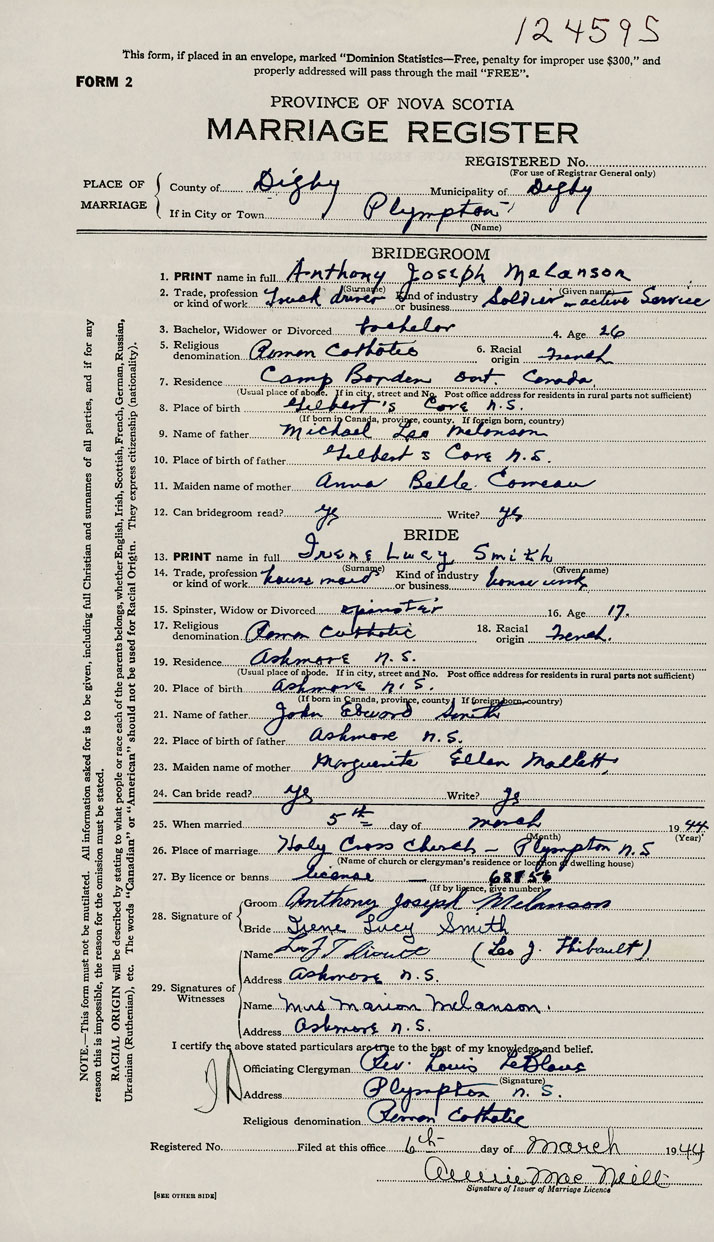 124595
This form, if placed in an envelope, marked "Dominion Statistics—Free, penalty for improper use $300," and
properly addressed will pass through the mail "FREE".
FORM 2
PROVINCE OF NOVA SCOTIA
MARRIAGE REGISTER
REGISTERED No.
(For use of Registrar General only)
PLACE OF MARRIAGE
County of Digby Municipality of Digby
If in City or Town Plympton
(Name)
BRIDEGROOM
1. PRINT name in full Anthony Joseph Melanson
(Surname) (Given name)
2. Trade, profession or kind of work Truck driver Kind of industry or business Soldier - active Service
3. Bachelor, Widower or Divorced bachelor 4. Age 26
5. Religious denomination Roman Catholic 6. Racial origin French
7. Residence Camp Borden Ont. Canada
(Usual place of abode. If in city, street and No. Post office address for residents in rural parts not sufficient)
8. Place of birth Gilbert's Cove N.S.
(If born in Canada, province, county. If foreign born, country)
9. Name of father Michael Leo Melonson
10. Place of birth of father Gilbert s Cove N.S.
11. Maiden name of mother Anna Belle Comeau
12. Can bridegroom read? yes Write? yes
BRIDE
13. PRINT name in full Irene Lucy Smith
(Surname) (Given name)
14. Trade, profession or kind of work house maid Kind of industry or business house work
15. Spinster, Widow or Divorced spinster 16. Age 17.
17. Religious denomination Roman Catholic 18. Racial origin French.
19. Residence Ashmore N.S.
(Usual place of abode. If in city, street and No. Post office address for residents in rural parts not sufficient)
20. Place of birth Ashmore N.S.
(If born in Canada, province, county. If foreign born, country)
21. Name of father John Edward Smith
22. Place of birth of father Ashmore N.S.
23. Maiden name of mother Marguerite Ellen Mallett
24. Can bride read? yes Write? yes
25. When married 5th day of March 1944
(Month) (Year)
26. Place of marriage Holy Cross Church - Plympton N.S
(Name of church or clergyman's residence or location of dwelling house)
27. By licence or banns license — 68756
(If by licence, give number)
28. Signature of
Groom Anthony Joseph Melanson
Bride Irene Lucy Smith
29. Signatures of Witnesses
Name (Leo J. Thibault)
Address Ashmore N.S.
Name Mrs Marion Melanson.
Address Ashmore N.S.
I certify the above stated particulars are true to the best of my knowledge and belief.
Officiating Clergyman Rev. Louis LeBlanc
(Signature)
Address Plympton N.S.
Religious denomination Roman Catholic
Registered No. Filed at this office 6th day of March 1944
Annie MacNeill
Signature of Issuer of Marriage Licence
[SEE OTHER SIDE]
NOTE.—This form must not be mutilated. All information asked for is to be given, including full Christian and surnames of all parties, and if for any
reason this is impossible, the reason for the omission must be stated.
RACIAL ORIGIN will be described by stating to what people or race each of the parents belongs, whether English, Irish, Scottish, French, German, Russian,
Ukrainian (Ruthenian), etc. The words "Canadian" or "American" should not be used for Racial Origin. They express citizenship (nationality).